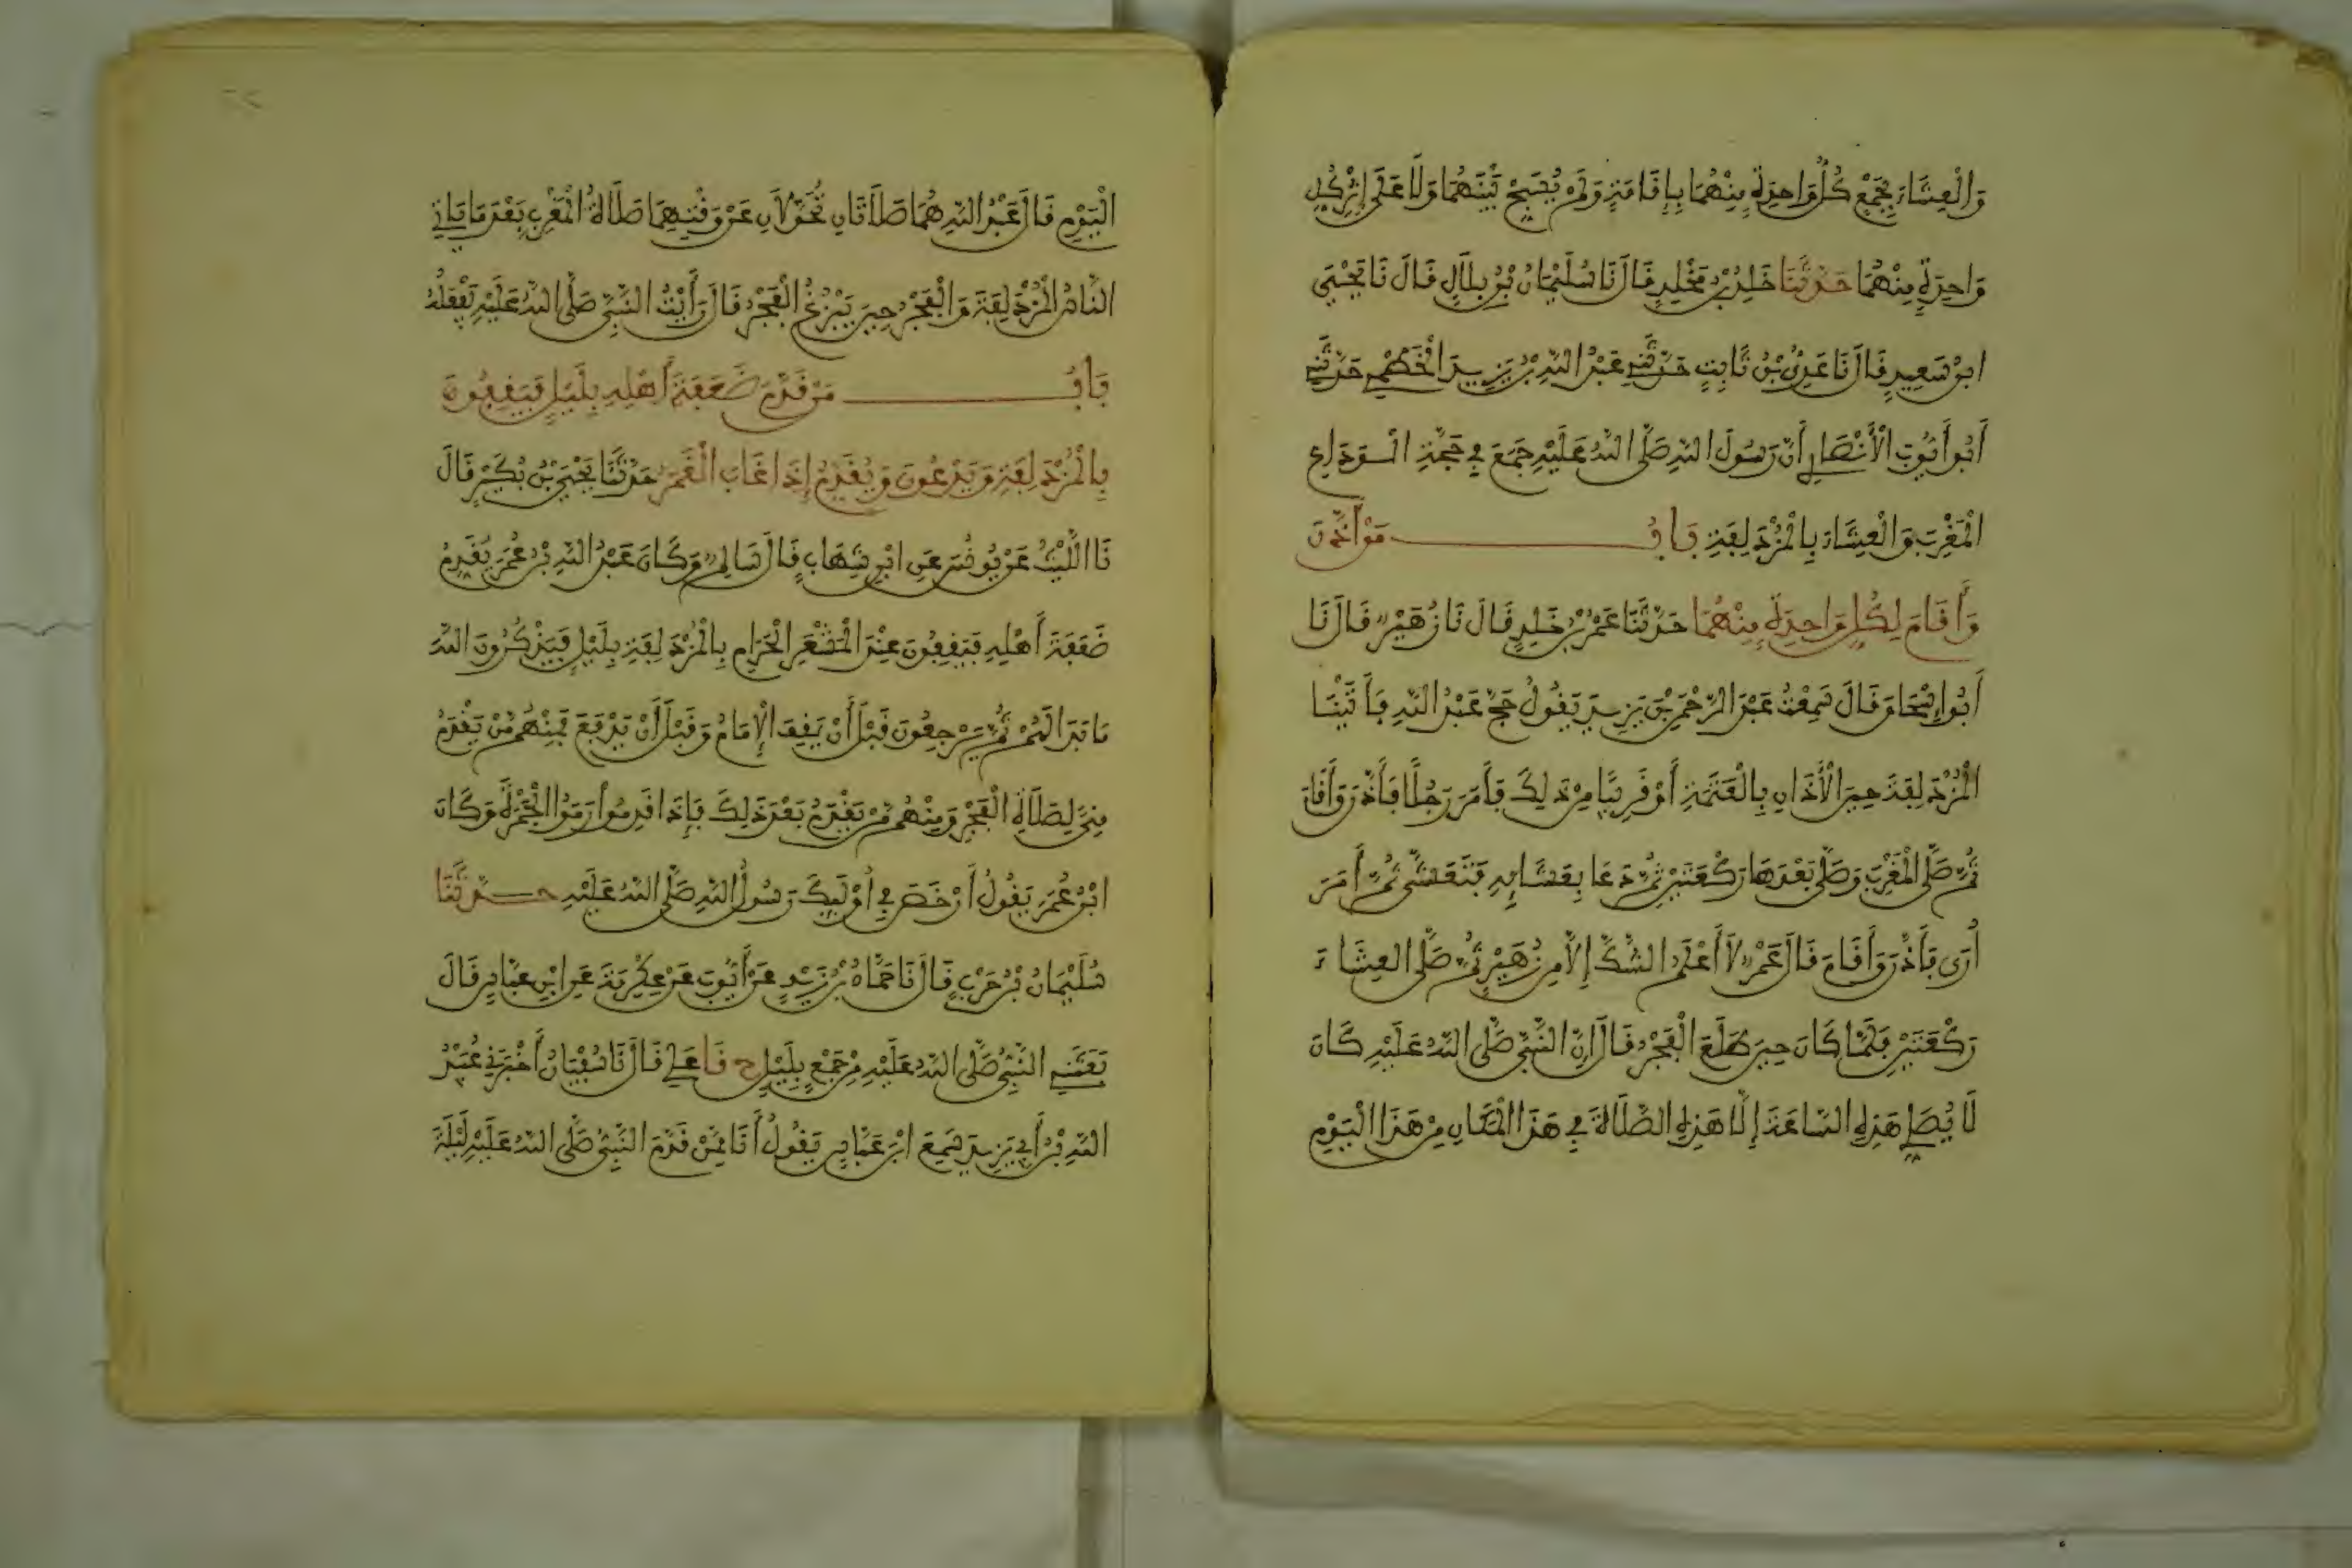 وَالْعِشَاءَ بِجَمْعٍ كُلُّ وَاحِدَةٍ مِنْهُمَا بِإِقَامَةٍ وَلَمْ يُسَبِّحْ بَيْنَهُمَا وَلَا عَلَى إِثْرِ كُلِّ
وَاحِدَةٍ مِنْهُمَا حَدَّثَنَا خَالِدُ بْنُ مَخْلَدٍ قَالَ نَا سُلَيْمَانُ بْنُ بِلَالٍ قَالَ نَا يَحْيَى
ابْنُ سَعِيدٍ قَالَ نَا عَدِيُّ بْنُ ثَابِتٍ حَدَّثَنِي عَبْدُ اللَّهِ بْنُ يَزِيدَ الْخَطْمِيُّ حَدَّثَنِي
أَبُو أَيُّوبَ الْأَنْصَارِيُّ أَنَّ رَسُولَ اللَّهِ صَلَّى اللَّهُ عَلَيْهِ جَمَعَ فِي حَجَّةِ الْوَدَاعِ
الْمَغْرِبَ وَالْعِشَاءَ بِالْمُزْدَلِفَةِ بَابُ مَنْ أَذَّنَ
وَأَقَامَ لِكُلِّ وَاحِدَةٍ مِنْهُمَا حَدَّثَنَا عَمْرُو بْنُ خَالِدٍ قَالَ نَا زُهَيْرٌ قَالَ نَا
أَبُو إِسْحَاقَ قَالَ سَمِعْتُ عَبْدَ الرَّحْمَنِ بْنَ يَزِيدَ يَقُولُ حَجَّ عَبْدُ اللَّهِ فَأَتَيْنَا
الْمُزْدَلِفَةَ حِينَ الْأَذَانِ بِالْعَتَمَةِ أَوْ قَرِيبًا مِنْ ذَلِكَ فَأَمَرَ رَجُلًا فَأَذَّنَ وَأَقَامَ
ثُمَّ صَلَّى الْمَغْرِبَ وَصَلَّى بَعْدَهَا رَكْعَتَيْنِ ثُمَّ دَعَا بِعَشَائِهِ فَتَعَشَّى ثُمَّ أَمَرَ
أُرَى فَأَذَّنَ وَأَقَامَ قَالَ عَمْرٌو لَا أَعْلَمُ الشَّكَّ إِلَّا مِنْ زُهَيْرٍ ثُمَّ صَلَّى الْعِشَاءَ
رَكْعَتَيْنِ فَلَمَّا كَانَ حِينَ طَلَعَ الْفَجْرُ قَالَ إِنَّ النَّبِيَّ صَلَّى اللَّهُ عَلَيْهِ كَانَ
لَا يُصَلِّي هَذِهِ السَّاعَةَ إِلَّا هَذِهِ الصَّلَاةَ فِي هَذَا الْمَكَانِ مِنْ هَذَا الْيَوْمِ
الْيَوْمِ قَالَ عَبْدُ اللَّهِ هُمَا صَلَاتَانِ تُحَوَّلَانِ عَنْ وَقْتِهِمَا صَلَاةُ الْمَغْرِبِ بَعْدَ مَا يَأْتِي
النَّاسُ الْمُزْدَلِفَةَ وَالْفَجْرُ حِينَ يَبْزُغُ الْفَجْرُ قَالَ رَأَيْتُ النَّبِيَّ صَلَّى اللَّهُ عَلَيْهِ يَفْعَلُهُ
بَابُ مَنْ قَدَّمَ ضَعَفَةَ أَهْلِهِ بِلَيْلٍ فَيَقِفُونَ
بِالْمُزْدَلِفَةِ وَيَدْعُونَ وَيُقَدِّمُ إِذَا غَابَ الْقَمَرُ حَدَّثَنَا يَحْيَى بْنُ بُكَيْرٍ قَالَ
نَا اللَّيْثُ عَنْ يُونُسَ عَنِ ابْنِ شِهَابٍ قَالَ سَالِمٌ وَكَانَ عَبْدُ اللَّهِ بْنُ عُمَرَ يُقَدِّمُ
ضَعَفَةَ أَهْلِهِ فَيَقِفُونَ عِنْدَ الْمَشْعَرِ الْحَرَامِ بِالْمُزْدَلِفَةِ بِلَيْلٍ فَيَذْكُرُونَ اللَّهَ
مَا بَدَا لَهُمْ ثُمَّ يَرْجِعُونَ قَبْلَ أَنْ يَقِفَ الْإِمَامُ وَقَبْلَ أَنْ يَدْفَعَ فَمِنْهُمْ مَنْ يَقْدَمُ
مِنًى لِصَلَاةِ الْفَجْرِ وَمِنْهُمْ مَنْ يَقْدَمُ بَعْدَ ذَلِكَ فَإِذَا قَدِمُوا رَمَوُا الْجَمْرَةَ وَكَانَ
ابْنُ عُمَرَ يَقُولُ أَرْخَصَ فِي أُولَئِكَ رَسُولُ اللَّهِ صَلَّى اللَّهُ عَلَيْهِ حَدَّثَنَا
سُلَيْمَانُ بْنُ حَرْبٍ قَالَ نَا حَمَّادُ بْنُ زَيْدٍ عَنْ أَيُّوبَ عَنْ عِكْرِمَةَ عَنِ ابْنِ عَبَّاسٍ قَالَ
بَعَثَنِي النَّبِيُّ صَلَّى اللَّهُ عَلَيْهِ مِنْ جَمْعٍ بِلَيْلٍ ح نَا عَلِي قَالَ نَا سُفْيَانُ أَخْبَرَنِي عُبَيْدُ
اللَّهِ بْنُ أَبِي يَزِيدَ سَمِعَ ابْنَ عَبَّاسٍ يَقُولُ أَنَا مِمَّنْ قَدَّمَ النَّبِيُّ صَلَّى اللَّهُ عَلَيْهِ لَيْلَةَ